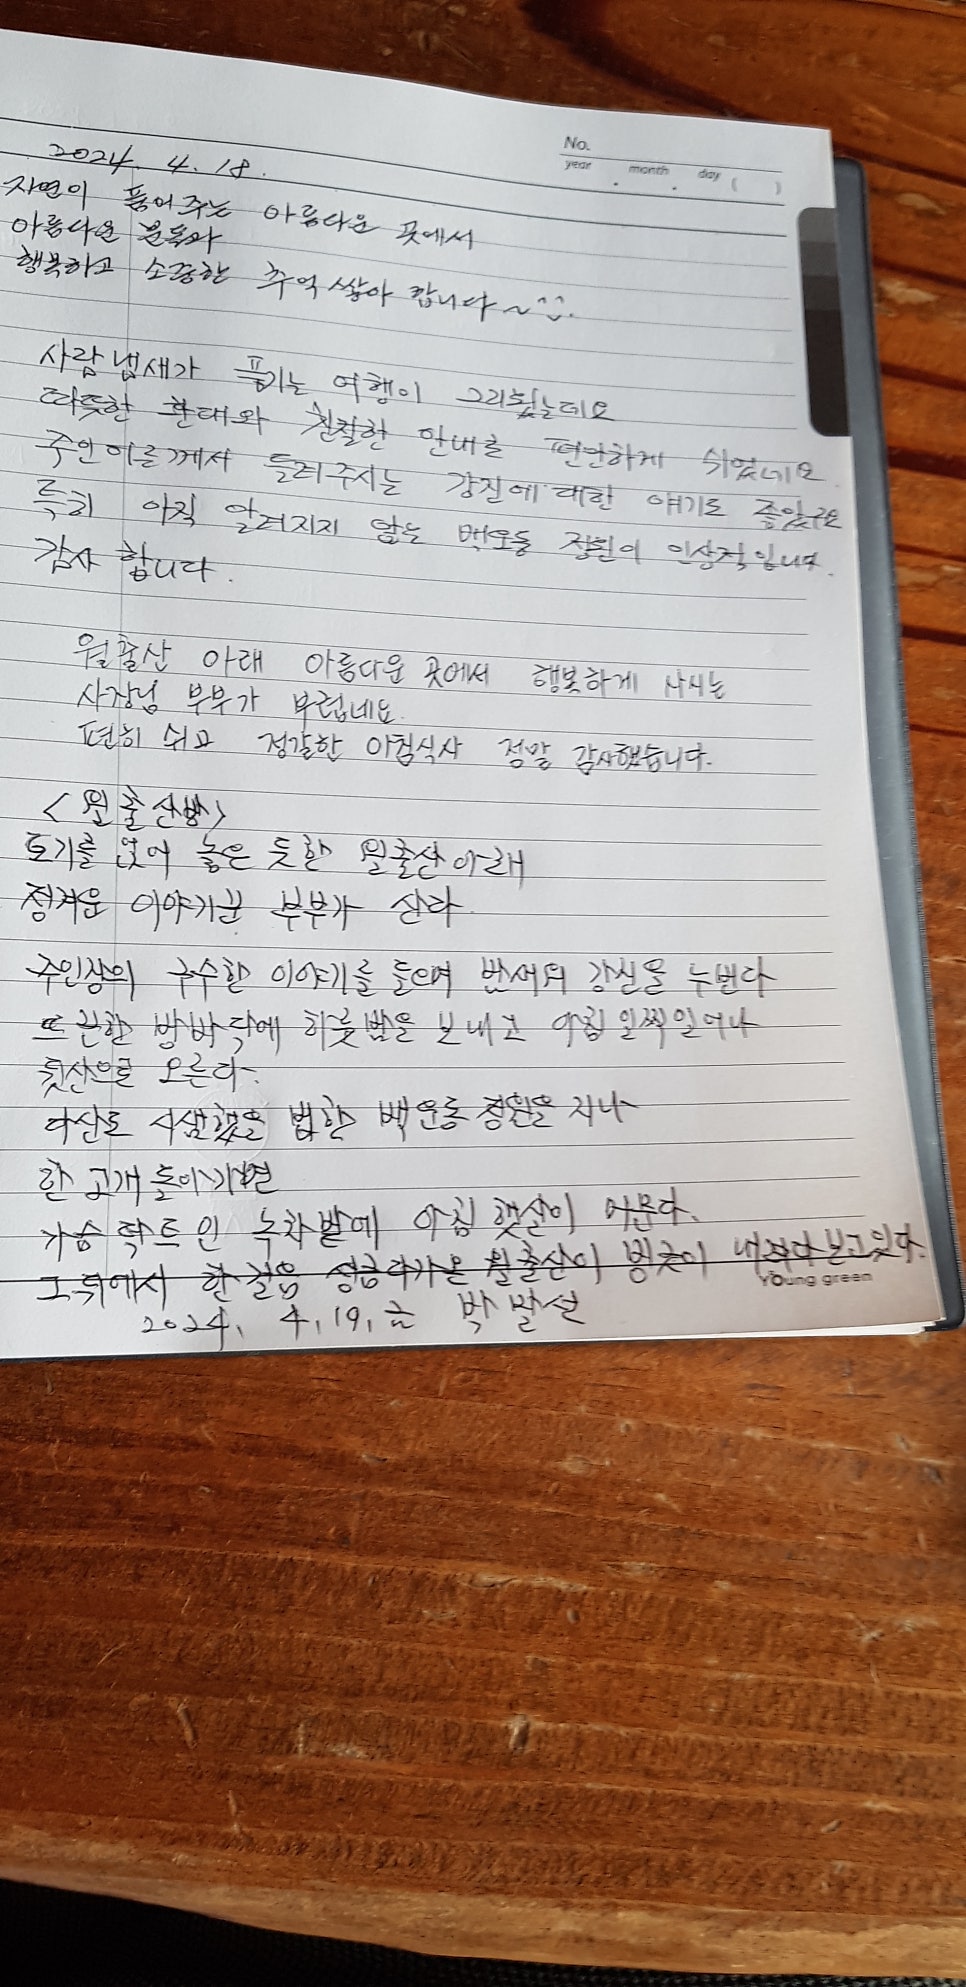 No.
year . month . day ( )
2024. 4. 18.
자연이 품어주는 아름다운 곳에서
아름다운 분들과
행복하고 소중한 추억 쌓아 갑니다~^^.
사람 냄새가 풍기는 여행이 그리웠는데요
따뜻한 환대와 친절한 안내로 편안하게 쉬었네요.
주인어른께서 들려주시는 강진에 대한 얘기도 좋았구요
특히 아직 알려지지 않는 백운동 정원이 인상적입니다.
감사 합니다.
월출산 아래 아름다운 곳에서 행복하게 사시는
사장님 부부가 부럽네요.
편히 쉬고 정갈한 아침식사 정말 감사했습니다.
<월출산방>
토기를 엎어 놓은 듯한 월출산 아래
정겨운 이야기꾼 부부가 산다.
주인장의 구수한 이야기를 들으며 강진을 누빈다
뜨끈한 방바닥에 하룻밤을 보내고 아침 일찍 일어나
뒷산으로 오른다.
다산도 시샘했을 법한 백운동 정원을 지나
한 고개 돌아가면
가슴 탁 트인 녹차밭에 아침 햇살이
그 뒤에서 한 걸음 성큼 다가온 월출산이 빙긋이 내려다 보고 있다.
Young green
2024. 4. 19. 금 박말선